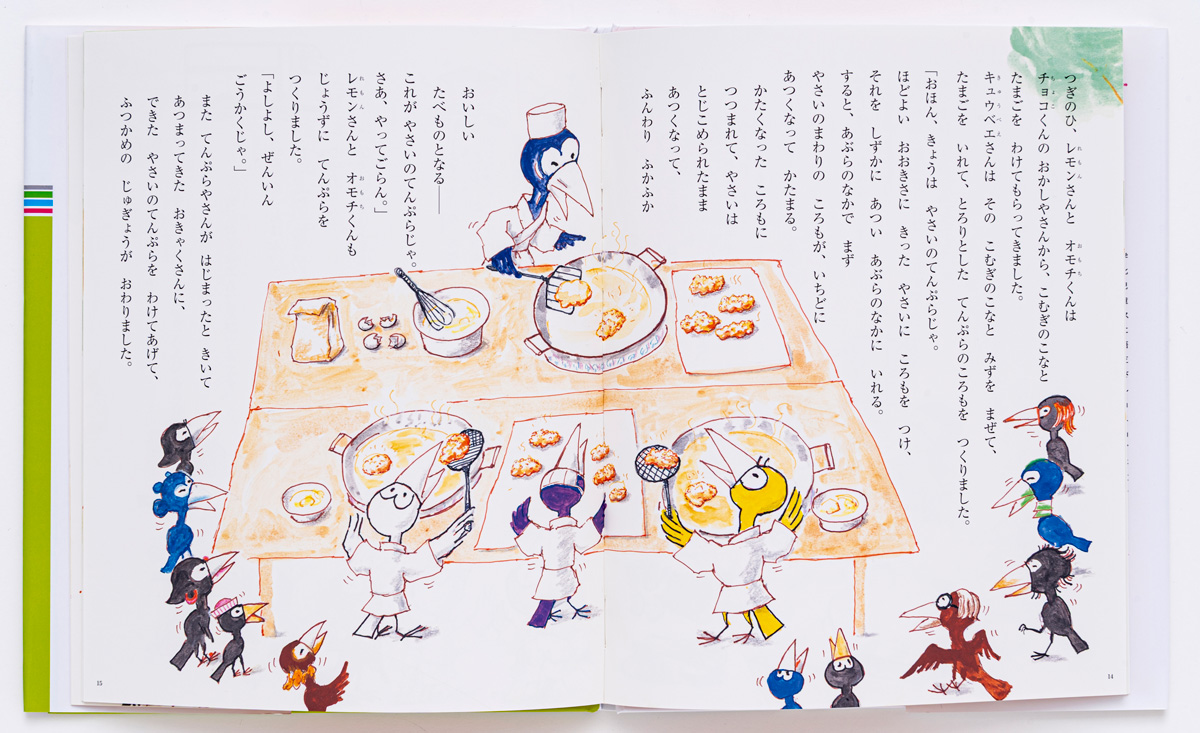 つぎのひ、レモンさんと オモチくんは
チョコくんの おかしやさんから、こむぎのこなと
たまごを わけてもらってきました。
キュウベエさんは その こむぎのこなと みずを まぜて、
たまごを いれて、とろりとした てんぷらのころもを つくりました。
「おほん、きょうは やさいのてんぷらじゃ。
ほどよい おおきさに きった やさいに ころもを つけ、
それを しずかに あつい あぶらのなかに いれる。
すると、あぶらのなかで まず
やさいのまわりの ころもが、いちどに
あつくなって かたまる。
かたくなった ころもに
つつまれて、やさいは
とじこめられたまま
あつくなって、
ふんわり ふかふか
14
おいしい
たべものとなる——
これが やさいのてんぷらじゃ。
さあ、やってごらん。」
レモンさんと オモチくんも
じょうずに てんぷらを
つくりました。
「よしよし、ぜんいん
ごうかくじゃ。」
また てんぷらやさんが はじまったと きいて
あつまってきた おきゃくさんに、
できた やさいのてんぷらを わけてあげて、
ふつかめの じゅぎょうが おわりました。
15